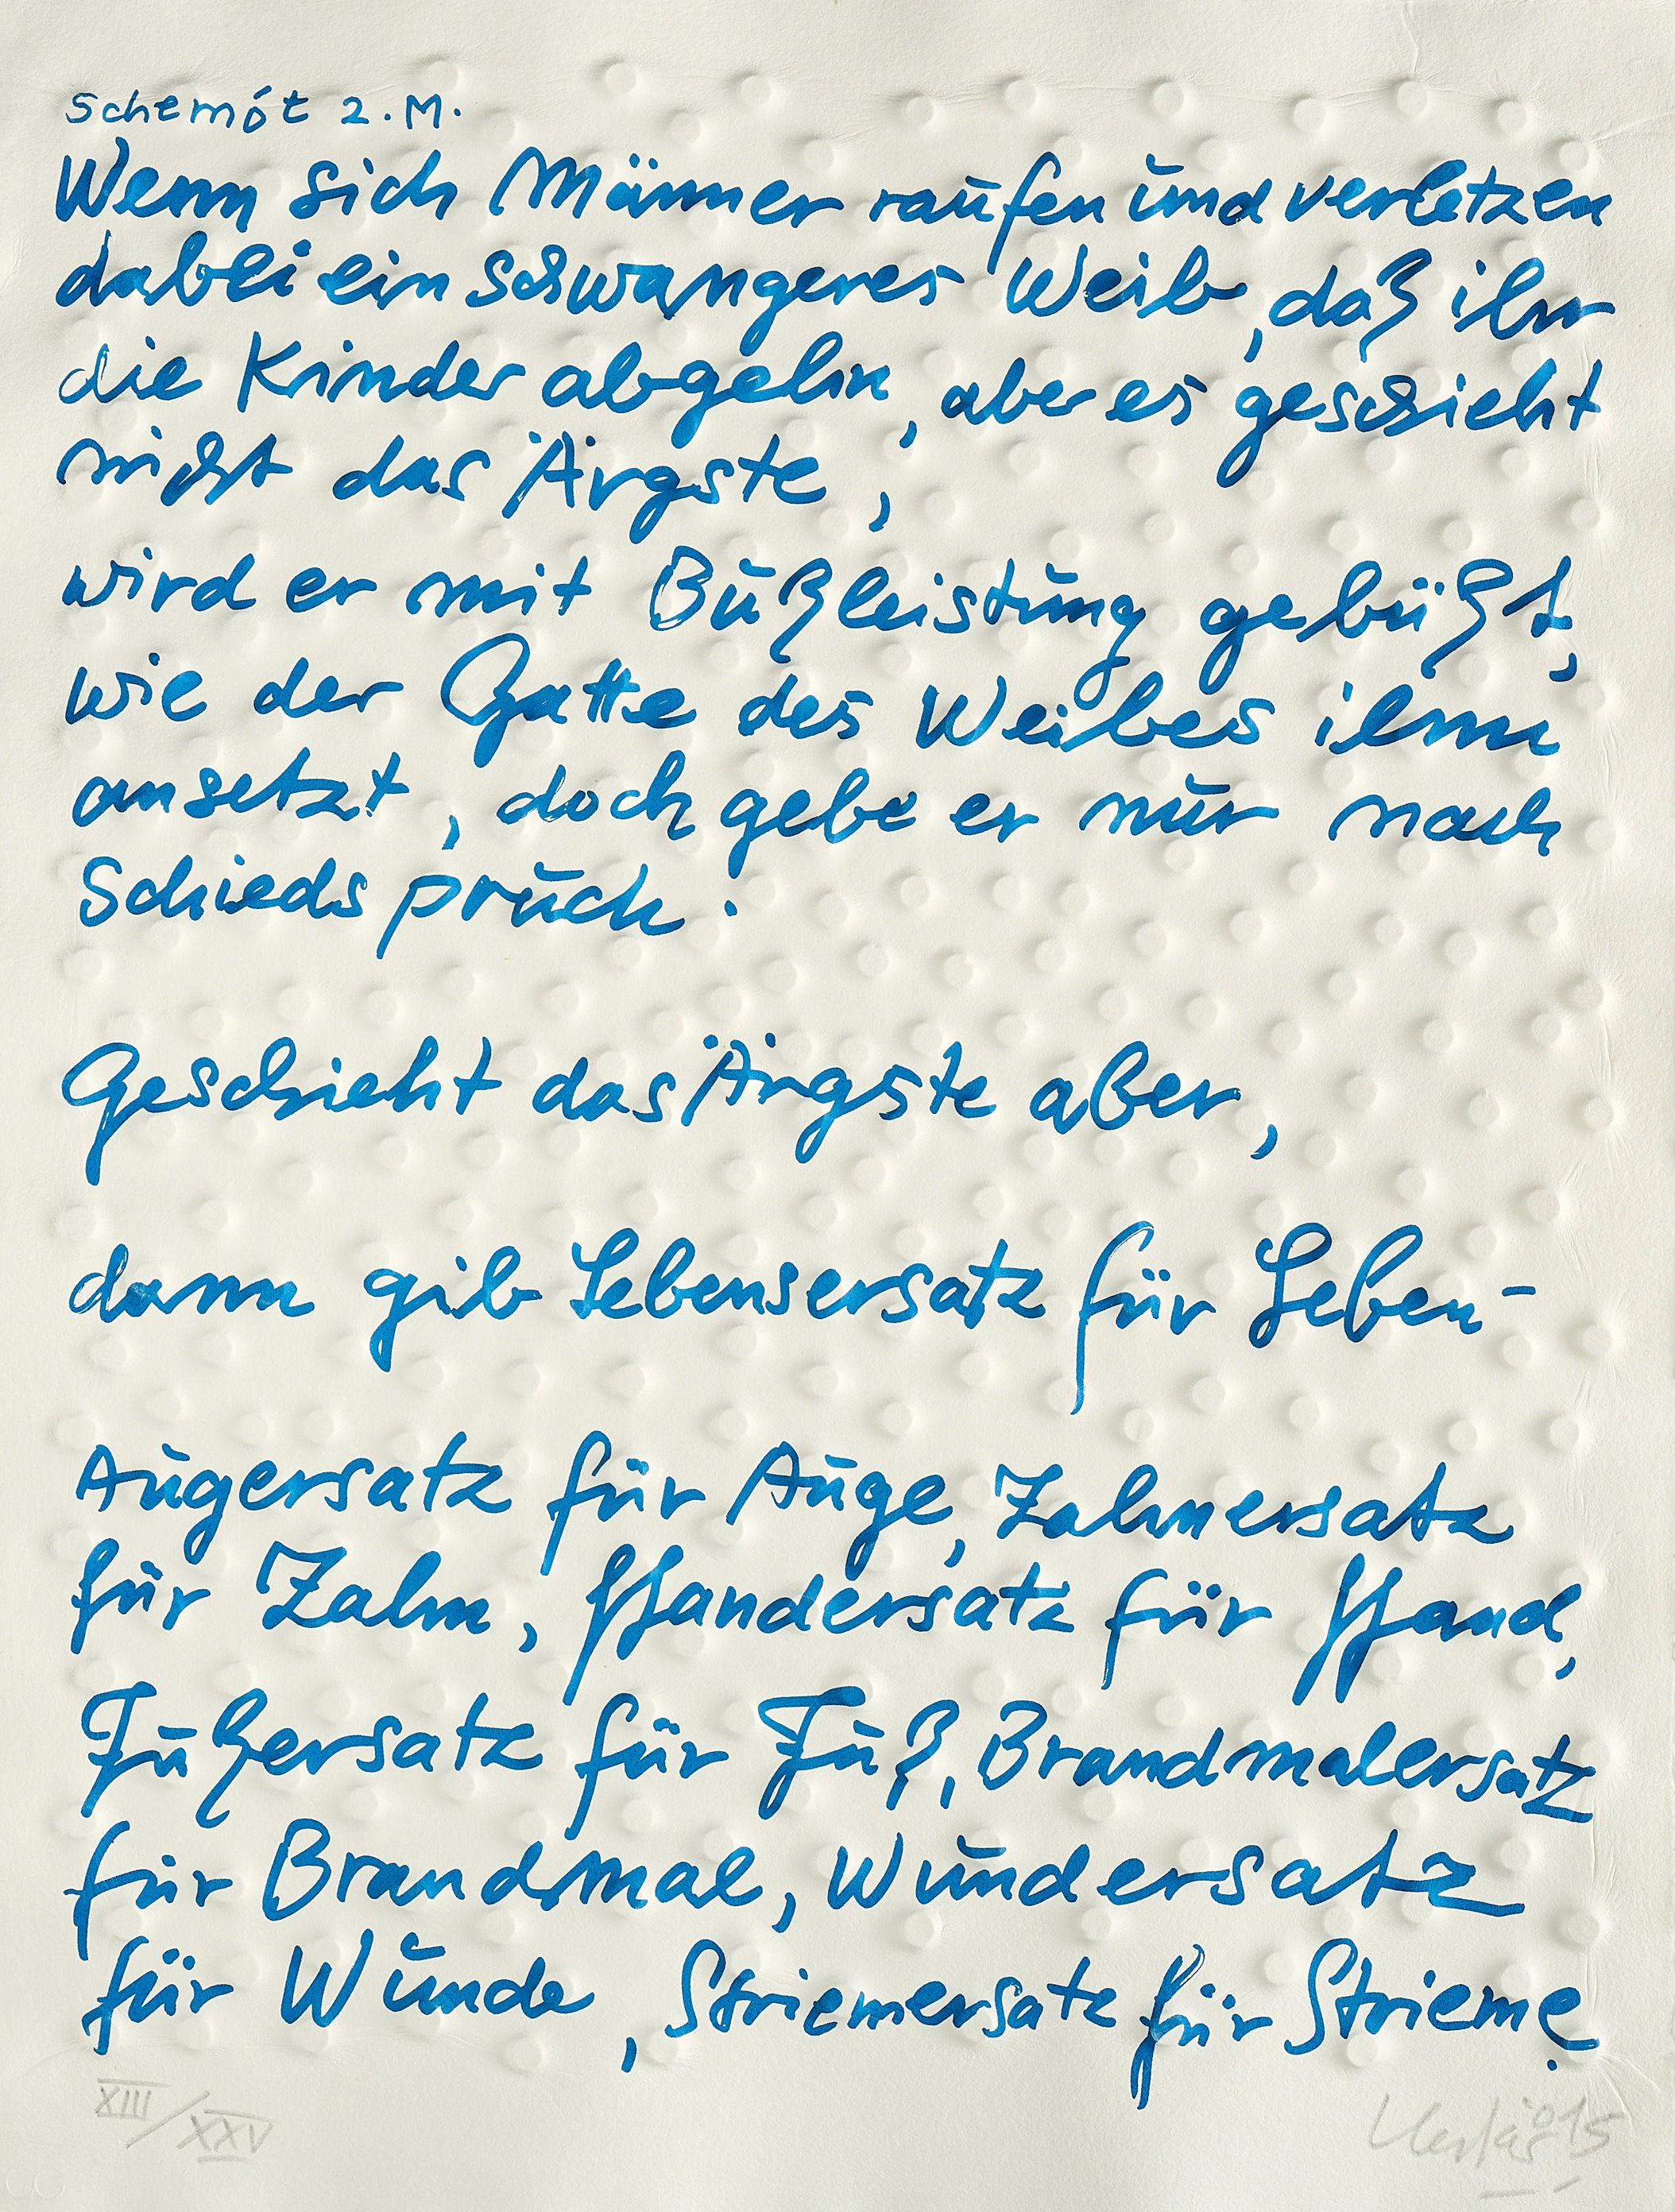 Schemót 2.M.
Wenn sich Männer raufen und verletzen
dabei ein schwangeres Weib, daß ihr
die Kinder abgehn, aber es geschieht
nicht das Ärgste,
wird er mit Bußleistung gebüßt,
wie der Gatte des Weibes ihm
ansetzt, doch gebe er nur nach
Schiedspruch.
Geschieht das Ärgste aber,
dann gib Lebensersatz für Leben-
Augersatz für Auge, Zahnersatz
für Zahn, Handersatz für Hand,
Fußersatz für Fuß, Brandmalersatz
für Brandmal, Wundersatz
für Wunde, Striemersatz für Strieme.
XIII/XXV